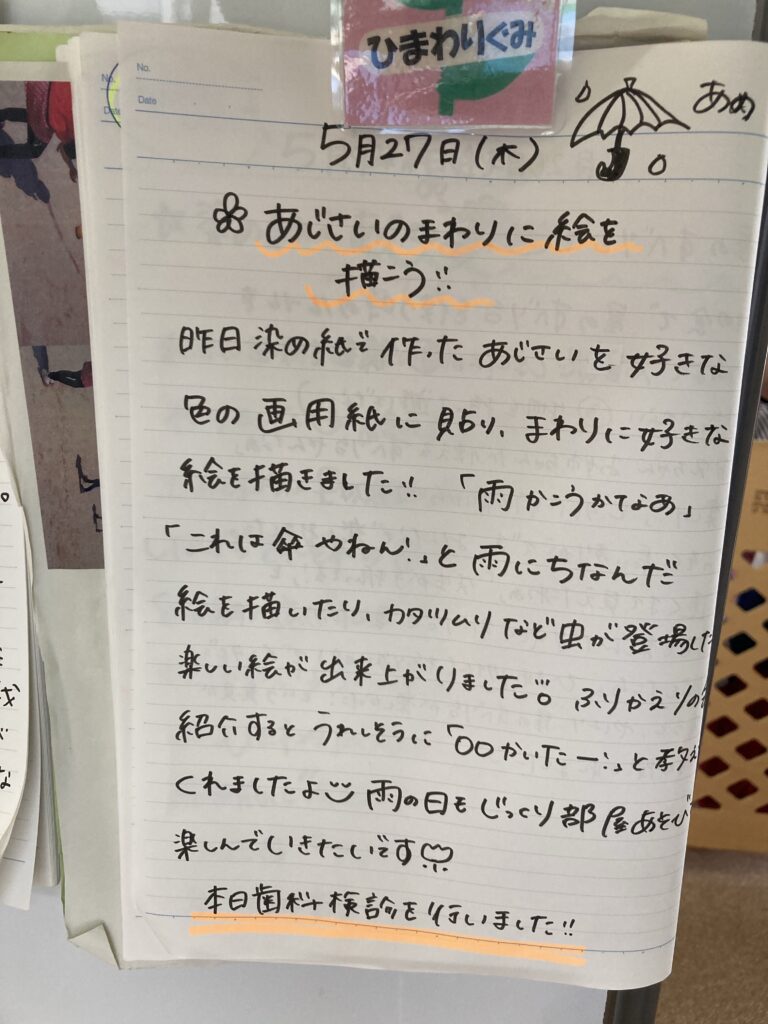 ひまわりぐみ
No.
Date
No.
Date
あめ
5月27日(木)
あじさいのまわりに絵を
描こう!!
昨日染め紙で作ったあじさいを好きな
色の画用紙に貼り、まわりに好きな
絵を描きました!!「雨かこうかなぁ」
「これは傘やねん!」と雨にちなんだ
絵を描いたり、カタツムリなど虫が登場した
楽しい絵が出来上がりました。ふりかえりの
紹介するとうれしそうに「〇〇かいたー!」と教え
くれましたよ 雨の日もじっくり部屋あそび
楽しんでいきたいです
本日歯科検診を行いました!!